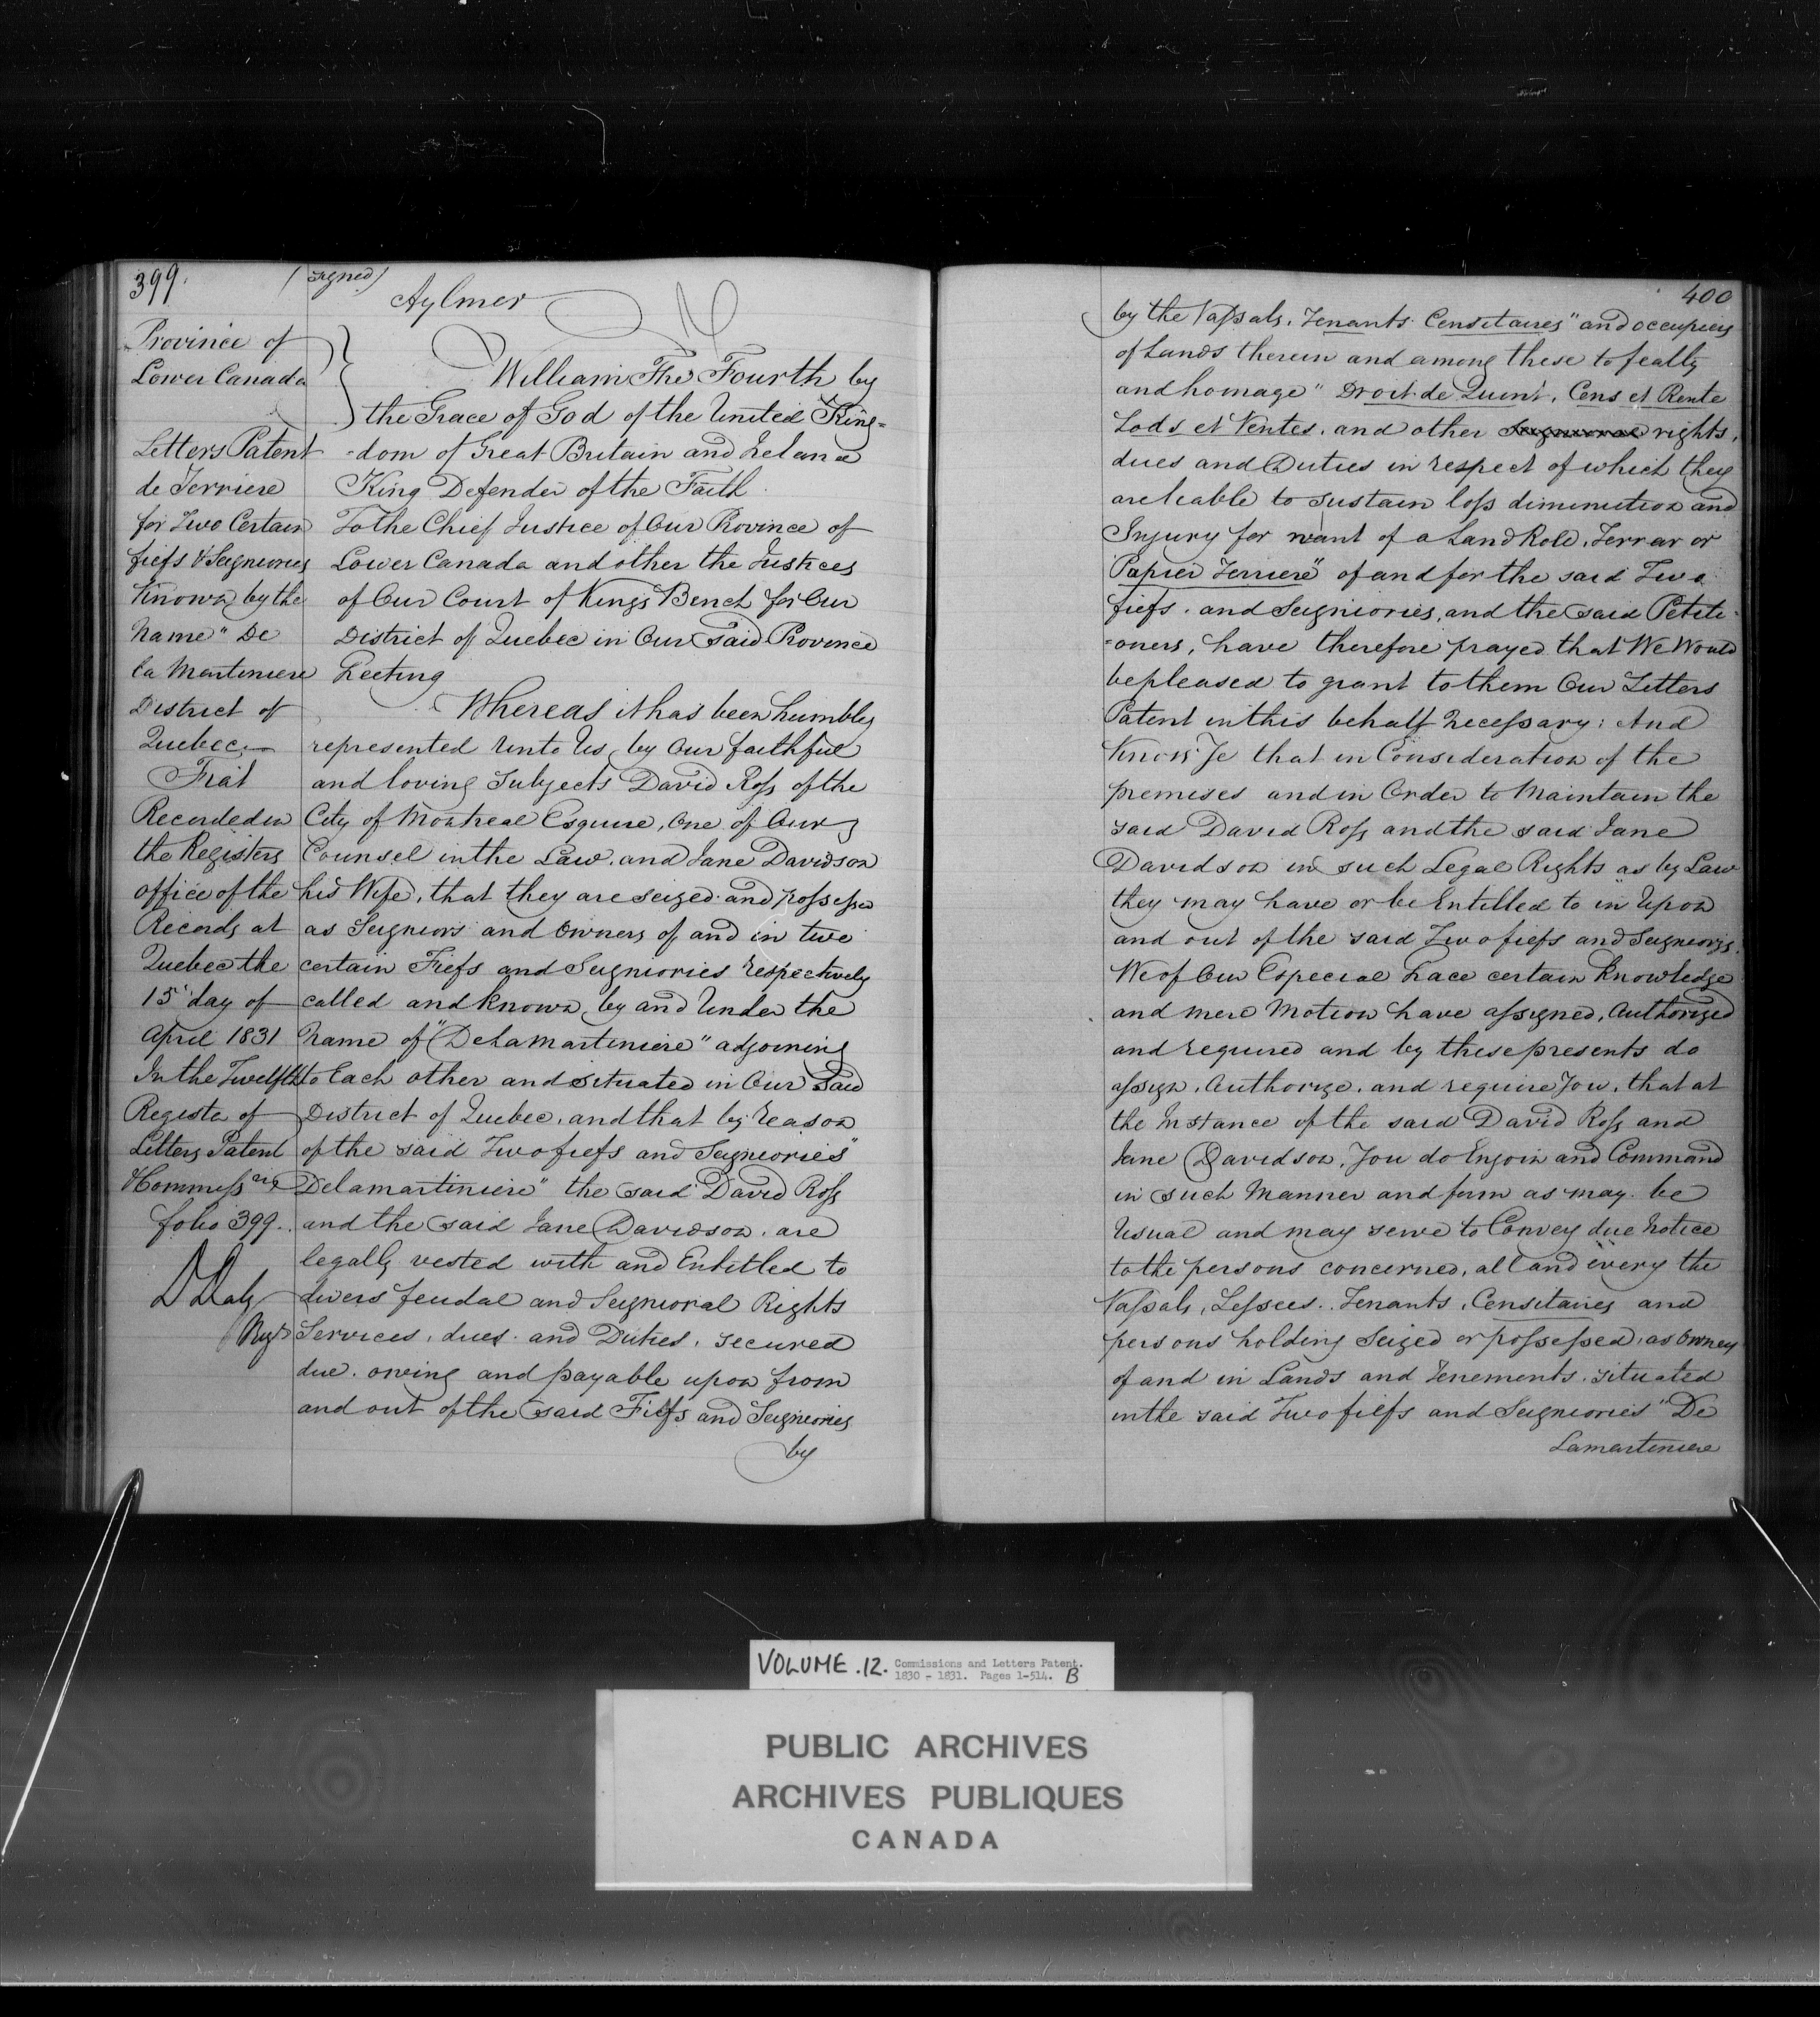 399.
(signed)
Aylmer
Province of
Lower Canada
Letters Patent
de Terriere
for Two Certain
fiefs & Seigniories
Known by the
Name " De
la Martiniere
District of
Quebec.—
Fiat
Recorded in
the Registers
office of the
Records at
Quebec the
15th day of
April 1831
In the Twelfth
Register of
Letters Patent
& Commissns
folio 399.
D Daly
Regr
William The Fourth by
the Grace of God of the United King=
=dom of Great Britain and Ireland
King Defender of the Faith.
To the Chief Justice of Our Province of
Lower Canada and other the Justices
of Our Court of Kings Bench for Our
District of Quebec in Our Said Province
Greeting
Whereas it has been humbly
represented Unto Us, by Our faithful
and loving Subjects David Ross of the
City of Montreal Esquire, One of Our
Counsel in the Law. and Jane Davidson
his Wife, that they are seized and possessed
as Seigniors and Owners of and in two
certain Fiefs and Seigniories respectively
called and known by and Under the
Name of "Delamartiniere" adjoining
to Each other and situated in Our Said
District of Quebec, and that by reason
of the said Two fiefs and Seigniories "
Delamartiniere" the said David Ross
and the said Jane Davidson. are
legally vested with and Entitled to
divers feudal and Seignioral Rights
Services, dues. and Duties. secured
due. owing and payable upon from
and out of the said Fiefs and Seigniories
by
400
by the Vassals. Tenants Censitaires" and occupiers
of Lands therein and among these to fealty
and homage " Droit de Quint. Cens et Rente
Lods et Ventes. and other Seignioral rights,
dues and Duties in respect of which they
are liable to sustain loss diminution and
Injury for want of a Land Role, Terrar or
Papier Terriere" of and for the said Two
fiefs. and Seigniories, and the said Petiti=
=oners, have therefore prayed that We Would
be pleased to grant to them Our Letters
Patent in this behalf Necessary: And
Know Ye that in Consideration of the
premises and in Order to Maintain the
said David Ross and the said Jane
Davidson in such Legal Rights as by Law
they may have or be Entitled to in Upon
and out of the said Two fiefs and Seigniories.
We of Our Especial Grace certain Knowledge
and mere Motion have assigned, Authorized
and required and by these presents do
assign. Authorize. and require You, that at
the Instance of the said David Ross and
Jane Davidson, You do Enjoin and Command
in such Manner and form as may be
Usual and may serve to Convey due Notice
to the persons concerned, all and every the
Vassals, Lessees.. Tenants, Censitaires and
persons holding Seized or possessed, as Owners
of and in Lands and Tenements. situated
in the said Two fiefs and Seigniories " De
Lamartiniere
VOLUME .12. Commissions and Letters Patent.
1830 - 1831. Pages 1-514. B
PUBLIC ARCHIVES
ARCHIVES PUBLIQUES
CANADA